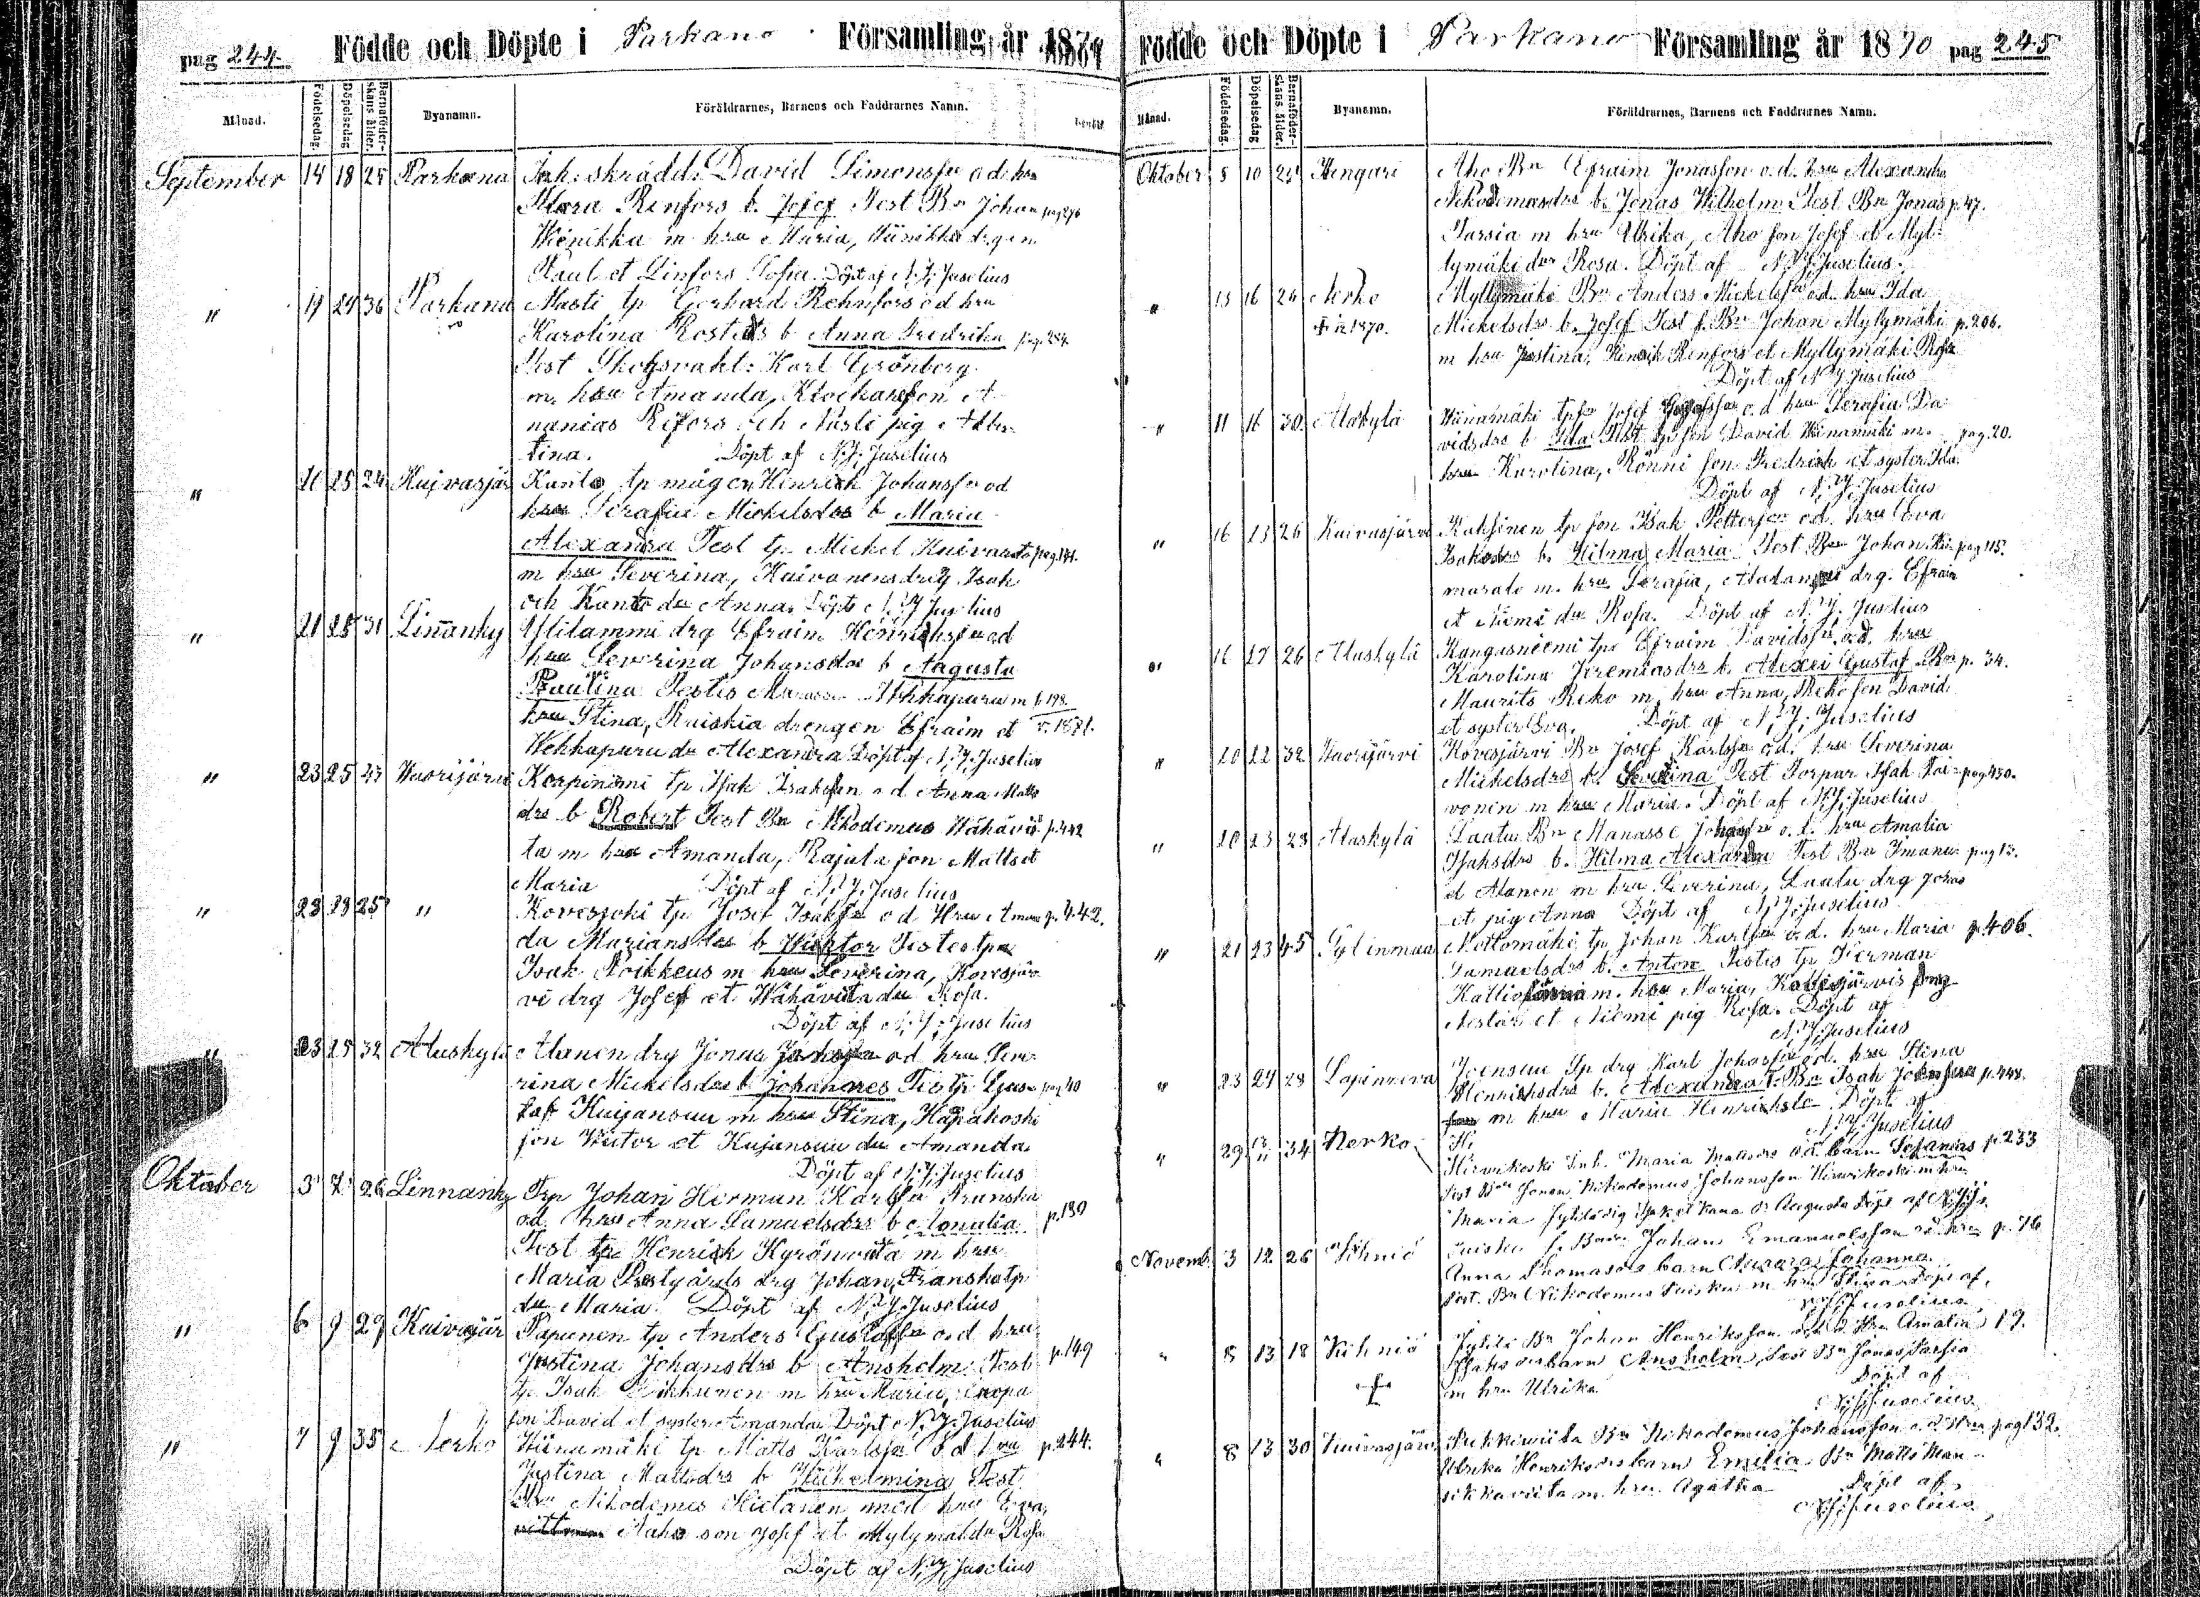 pag 244. Födde och Döpte i Parkano Församling år 187
Månad. Födelsedag. Döpelsedag Barnaföderskans ålder. Byanamn. Föräldrarnes, Barnens och Faddrarnes Namn.
September 14 18 25 Parkano Inh: skrädd. David Simonsson o d. hru
Klara Renfors b. Josef Test Bn Johan pag 276
Wiinikka m hru Maria, Wiinikka drgen
Paul et Linfors Sofia. Döpt af N. J. Juselius
" 19 24 36 Parkano Masti tp Gerhard Rehnfors o d hru
Karolina Rosteds b Anna Fredrika pag. 254
Test Skogsvakt: Karl Grönberg
m. hru Amanda, Klockareson A-
nanias Rifors och Nästi pig Alber-
tina. Döpt af N. J. Juselius
" 20 25 24 Kuivasjär Kanto tp mågen Henrik Johansson o d
hru Serafia Mickelsdr b Maria
Alexandra Test tp Mickel Kuivan
m hru Severina, Kuivanens drg Isak
och Kanto dr Anna. Döpt N. J Juselius
" 21 25 31 Linnanky Ylilammi drg Efraim Henriksson o d
hru Severina Johansdr b Augusta
Paulina Testis Wehkapuru m p. 198
hru Stina, Kuiskia drengen Efraim et v. 1871.
Wehkapuru dr Alexandra Döpt af N. J. Juselius
" 23 25 43 Vuorijärvi Korpiniemi tp Isak Isaksson o d Anna Matts
drs b Robert Test Bn Nikodemus Wähävii p. 442
ta m hru Amanda, Rajala son Matts et
Maria Döpt af N. J. Juselius
" 23 23 25 " Kovesjoki tp Josef Isaksson o d Hru Aman p. 442.
da Mariansdr b Wichtor Testes tpn
Isak Poikkeus m hru Severina, Kovesjär
vi drg Josef et Wähäviita dr Rosa.
Döpt af N. J. Juselius
" 23 25 32 Alaskylä Alanen drg Jonas o d hru Seve-
rina Mickelsdr b Johannes Tes tp Gus- pag 40
taf Kuijansuu m hru Stina, Hapakoski
son Wictor et Kujansuu dr Amanda
Döpt af N. J. Juselius
Oktober 3 7 26 Linnanky Trp Johan Herman Karlsson Franska
o d. hru Anna Samuelsdr b Amalia p. 139
Test tp Henrick Kyrönviita m hru
Maria Prestgårds drg Johan, Franska tp
dr Maria Döpt af N. J. Juselius
" 6 9 29 Kuivasjär Papunen tp Anders Gustafsson o d hru
Justina Johansdr b Ansholm Test p. 149
tp Isak Wikkunen m hru Maria,
son David et syster Amanda Döpt N. J. Juselius
" 7 9 35 Nerko Wiinamäki tp Matts Karlsson o d hru p. 244.
Justina Mattsdr b Wilhelmina Test
Bn Nikodemus Hietanen med hru Eva,
Aaho son Josef et Myllymäki dr Rosa
Döpt af N. J. Juselius
Födde och Döpte i Parkano Församling år 1870 pag 245
Månad. Födelsedag. Döpelsedag Barnaföderskans ålder. Byanamn. Föräldrarnes, Barnens och Faddrarnes Namn.
Oktober 8 10 25 Hengari Aho Bn Efraim Jonasson o. d. hru Alexandra
Nikodemusdr b. Jonas Wilhelm Test Bn Jonas p. 47.
Parsia m hru Ulrika, Aho son Josef et Myl-
lymäki dr Rosa. Döpt af N. J. Juselius.
" 15 16 24 Nerko Myllymäki Bn Anders Mickelsson o d. hru Ida
1870. Mickelsdr b. Josef Test f. Bn Johan Myllymäki p. 206.
m hru Justina, Henrik Renfors et Myllymäki Rosa
Döpt af N J Juselius
" 11 16 30 Alaskylä Wiinamäki tpson Josef o. d hru Serafia Da-
vidsdr b Ida Test tp son David Wiinamäki m. pag. 20.
hru Karolina, Rönni son Fredrik et syster Ida
Döpt af N. J. Juselius
" 16 23 26 Kuivasjärvi Kuksinen tp son Isak Petterson o d. hru Eva
Isaksdr b. Hilma Maria Test Bn Johan pag 115.
m. hru Serafia, drg. Efraim
et Niemi dr Rosa. Döpt af N. J. Juselius
" 16 17 26 Alaskylä Kangasniemi tpn Efraim Davidsson o. d. hru
Karolina Jeremiasdr b. Alexei Gustaf Bn p. 34.
Maurits Reko m hru Anna, Reko son David
et syster Eva. Döpt af N. J. Juselius
" 20 22 32 Vuorijärvi Kovesjärvi Bn Josef Karlsson o d. hru Severina
Mickelsdr b. Severina Test Torpar Isak Toi- pag 430.
vonen m hru Maria. Döpt af N. J. Juselius
" 20 23 23 Alaskylä Laatu Bn Manasse o. d. hru Amalia
Isaksdr b. Hilma Alexandra Test Bn Imanu- pag 12.
el Alanen m hru Severina, Laatu drg Johan
et pig Anna Döpt af N. J. Juselius
" 21 23 45 Sydänmaa Mottomäki tp Johan Karlsson o. d. hru Maria p. 406.
Samuelsdr b. Anton Testes tp Herman
Kalliojärvi m. hru Maria, Kallisjärvis drng
Nestor et Niemi pig Rosa. Döpt af
N. J. Juselius
" 23 24 28 Lapinneva Joensuu Tp drg Karl Johansson o d. hru Stina
Henriksdr b. Alexandra T. Bn Isak Joensuu p. 448.
m hru Maria Henriksdr. Döpt af
N. J. Juselius
" 29 13/11 34 Nerko Hirvikoski Inh. Maria Mattsdr o ä barn Sefanias p 233
test Bn sonen Nikodemus Johansson Hirvikoski m hru
Maria
Novemb. 3 12 26 Kihniö Luiska f. Bn Johan Emanuelsson o d hru p. 76
Anna Thomasdr barn Maria Johanna
test. Bn Nikodemus Luiska m hru Stina Döpt af
N J Juselius
" 8 13 18 Kihniö Bn Johan Henriksson och d. Hru Amalia p 19.
Isaksdr barn Ansholm, test Bn Jonas Parsia
m hru Ulrika Döpt af
N J Juselius
" 8 13 30 Kuivasjärvi Pukkiviita Bn Nikodemus Johansson o. d. Hru pag 132.
Ulrika Henriksdr barn Emilia Bn Matts Man-
sikkaviita m. hru Agatha Döpt af
N J Juselius